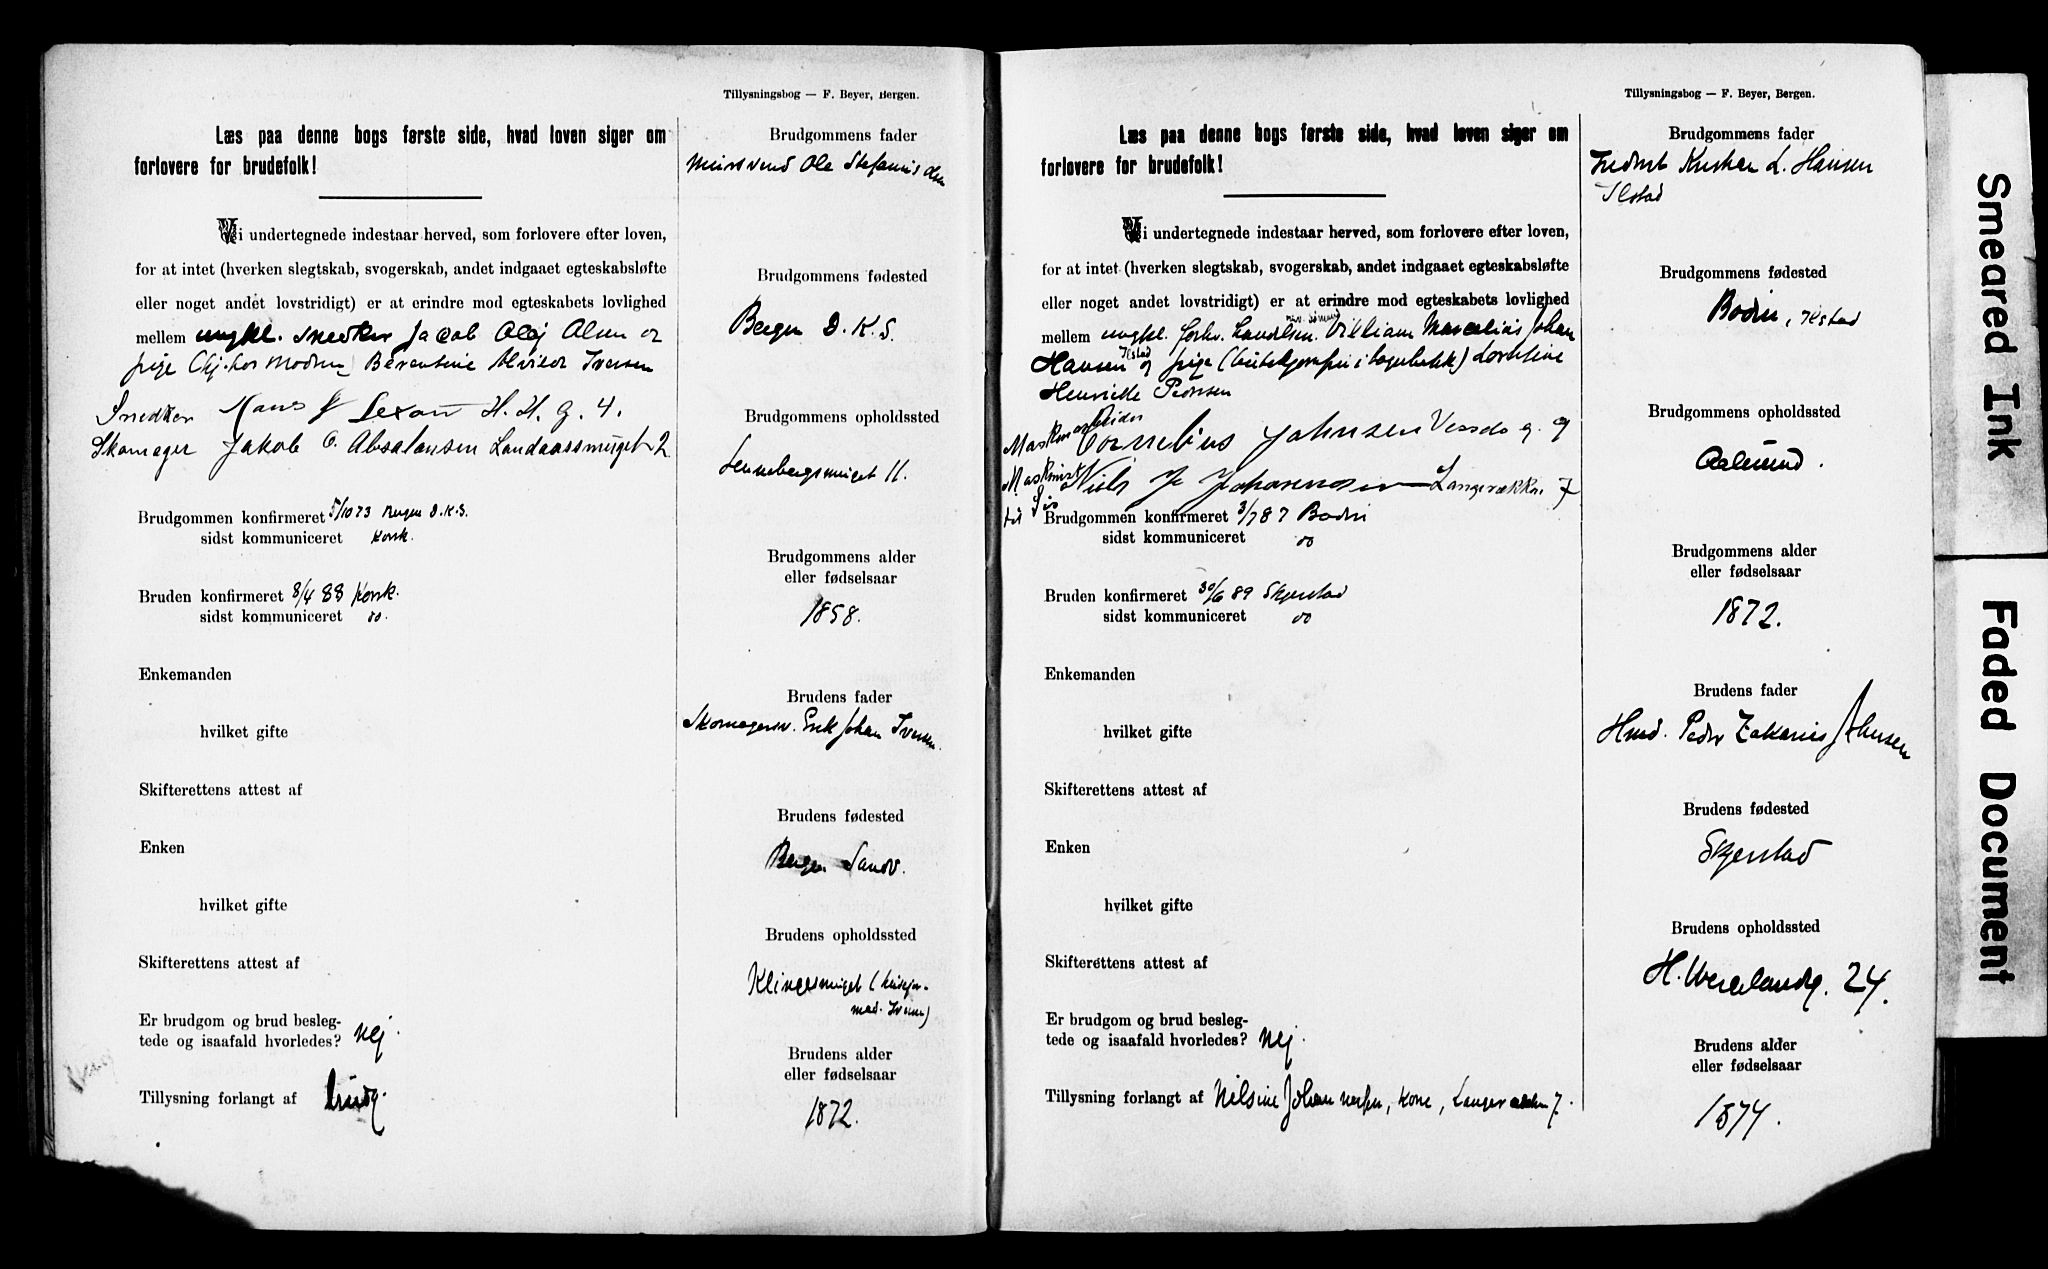 Tillysningsbog — F. Beyer, Bergen.
Læs paa denne bogs første side, hvad loven siger om
forlovere for brudefolk!
Vi undertegnede indestaar herved, som forlovere efter loven,
for at intet (hverken slegtskab, svogerskab, andet indgaaet egteskabsløfte
eller noget andet lovstridigt) er at erindre mod egteskabets lovlighed
mellem ungkl. snedker Jacob Olaj Olsen og
pige (hj. hos modren) Berentine Alvilde Iversen
Snedker Hans J Lexau H. H. G. 4.
Skomager Jakob O. Absalonsen Landaassmuget 2
Brudgommen konfirmeret 5/10 73 Bergen D.K.S.
sidst kommuniceret Korsk.
Bruden konfirmeret 8/4 88 Korsk.
sidst kommuniceret do.
Enkemanden
hvilket gifte
Skifterettens attest af
Enken
hvilket gifte
Skifterettens attest af
Er brudgom og brud besleg-
tede og isaafald hvorledes? Nej.
Tillysning forlangt af brudg.
Brudgommens fader
Mursvend Ole Stefanus Olsen
Brudgommens fødested
Bergen D. K. S.
Brudgommens opholdssted
Lennebergsmuget 11.
Brudgommens alder
eller fødselsaar
1858.
Brudens fader
Skomagersv. Erik Johan Iversen.
Brudens fødested
Bergen Sandv.
Brudens opholdssted
Klingesmuget
mad. Iversen)
Brudens alder
eller fødselsaar
1872.
Tillysningsbog — F. Beyer, Bergen.
Læs paa denne bogs første side, hvad loven siger om
forlovere for brudefolk!
Vi undertegnede indestaar herved, som forlovere efter loven,
for at intet (hverken slegtskab, svogerskab, andet indgaaet egteskabsløfte
eller noget andet lovstridigt) er at erindre mod egteskabets lovlighed
mellem ungkl. forhv. Villiam Marcelius Johan
Hansen Ilstad og pige
Henriette Pedersen
Maskinarbeider Cornelius Johnsen Vessdo g. 9
Maskinist Niels J Johannesen Langerækken 7
til Sjøs
Brudgommen konfirmeret 3/7 87 Bodin
sidst kommuniceret do
Bruden konfirmeret 30/6 89 Skjerstad
sidst kommuniceret do
Enkemanden
hvilket gifte
Skifterettens attest af
Enken
hvilket gifte
Skifterettens attest af
Er brudgom og brud besleg-
tede og isaafald hvorledes? Nej.
Tillysning forlangt af Nilsine Johannesen, kone, Langerækken 7.
Brudgommens fader
Kristian L. Hansen
Ilstad
Brudgommens fødested
Bodin, Ilstad
Brudgommens opholdssted
Aalesund.
Brudgommens alder
eller fødselsaar
1872.
Brudens fader
Hmd. Peder Zakarias Johnsen
Brudens fødested
Skjerstad
Brudens opholdssted
H. Wergelandsg. 24.
Brudens alder
eller fødselsaar
1874.
Smeared Ink
Faded Document